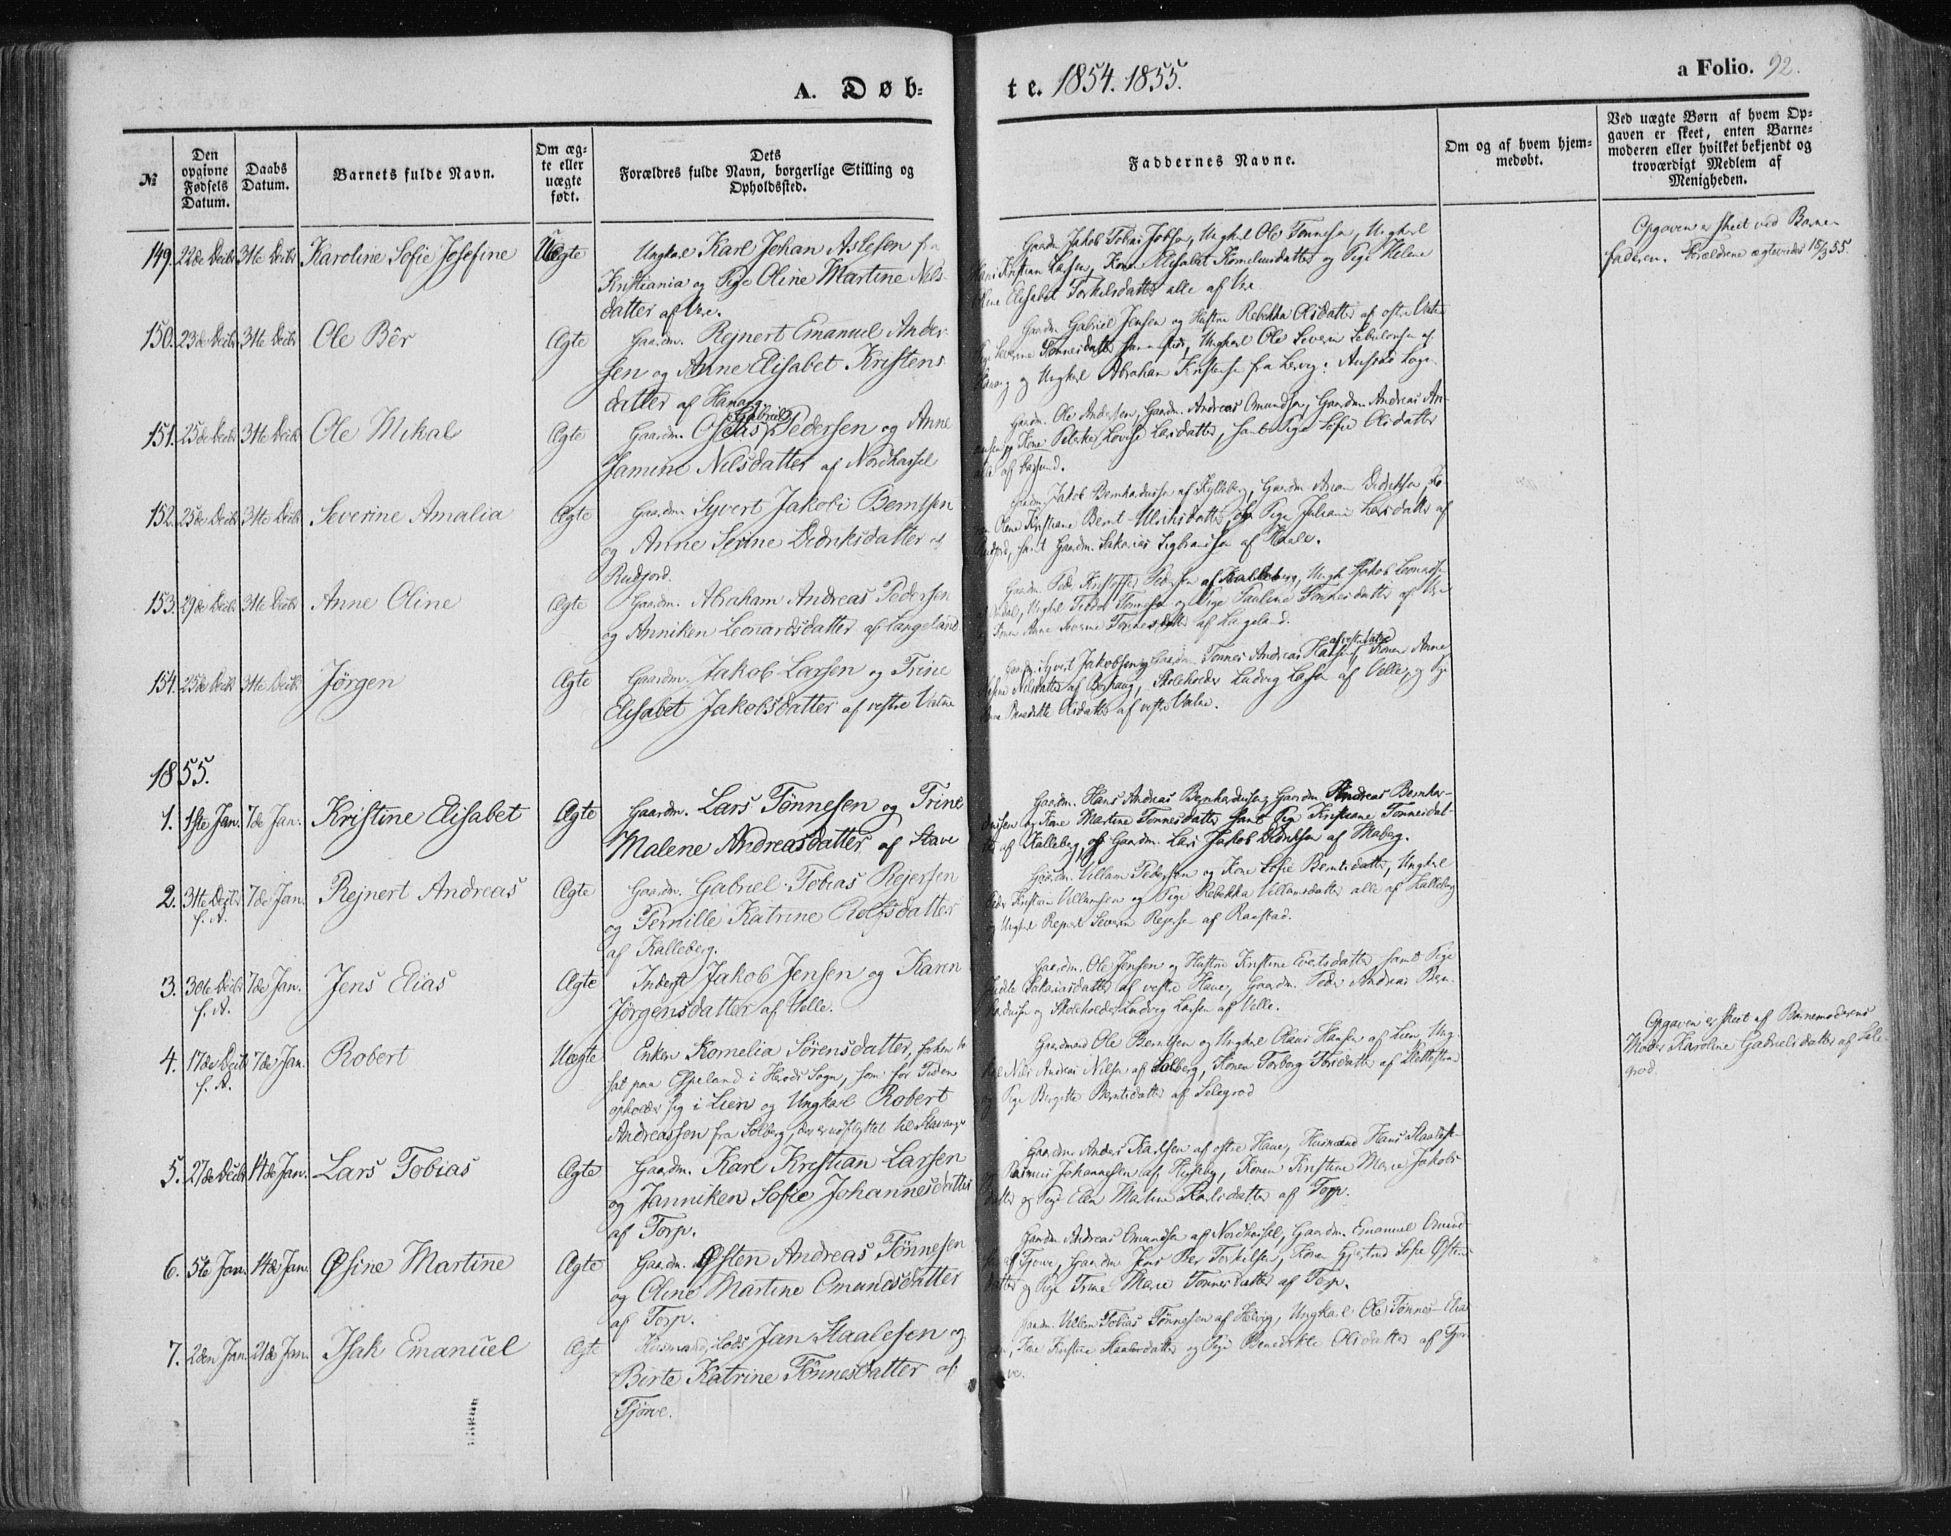 A. Døb-
te. 1854. 1855.
a Folio. 92.
№
Den opgivne Fødsels Datum.
Daabs Datum.
Barnets fulde Navn.
Om ægte eller uægte født.
Dets Forældres fulde Navn, borgerlige Stilling og Opholdssted.
Faddernes Navne.
Om og af hvem hjemmedøbt.
Ved uægte Børn af hvem Opgaven er skeet, enten Barnemoderen eller hvilket bekjendt og troværdigt Medlem af Menigheden.
149. 22de Decbr 31te Decbr Karoline Sofie Josefine Uægte Ungkarl Karl Johan Aslesen fra
Kristiania og Pige Oline Martine Nils-
datter af Vre.
Gaardm. Jakob Tobias Jobsen, Ungkarl Ole Tønnesen, Ungkarl
Hans Kristian Larsen, Kone Elisabet Korneliusdatter og Pige Helene
Elisabet Torkelsdatter alle af Vre.
Opgaven er skeet ved Barne-
faderen. Forældrene ægteviede 15/3 55.
150. 23de Decbr 31te Decbr Ole Bêr Ægte Gaardm. Rejnert Emanuel Ander-
sen og Anne Elisabet Kristens-
datter af Hanang.
Gaardm. Gabriel Jensen og Hustru Rebekka Olsdatter af østre Vatne
Severine Tønnesdatter sammesteds, Ungkarl Ole Severin
og Ungkarl Abraham Kristensen fra Lervig i Augsnæs Sogn.
151. 25de Decbr 31te Decbr Ole Mikal Ægte Gaardm. Oseias Gabriel Pedersen og Anne
Jamine Nilsdatter af Nordhassel
Gaardm. Ole Andersen, Gaardm. Andreas Omundsen, Gaardm. Andreas
Kone Lovise Larsdatter, samt Pige Sofie Olsdatter
152. 25de Decbr 31te Decbr Severine Amalia Ægte Gaardm. Syvert Jakob Berntsen
og Anne Serine Didriksdatter af
Rudjord.
Gaardm. Jakob Bernhardussen af Kylleberg, Gaardm. Aanon Didriksen,
Olene Kristiane Bernt-Ulriksdatter, og Pige Juliane Larsdatter af
Rudjord, samt Gaardm. Sakarias Sigbrandsen af
153. 29de Decbr 31te Decbr Anne Oline Ægte Gaardm. Abraham Andreas Pedersen
og Anniken Leonardsdatter af Langeland
Gaardm. Peder Kristoffer Pedersen af Kalleberg, Ungk. Jakob
Ungkarl Teodor Tønnesen og Pige Pauline Tønnesdatter af Vre
Anne Severine Tønnesdatter af Langeland.
154. 25de Decbr 31te Decbr Jörgen Ægte Gaardm. Jakob Larsen og Trine
Elisabet Jakobsdatter af vestre Vatne
Gaardm. Syvert Jakobsen og Gaardm. Tønnes Andreas Hansen af vestre Vatne, Konen Anne
Nilsdatter af Borhaug, Skoleholder Ludvig Larsen af Velle, og Pige
Benedikte Olsdatter af vestre Vatne.
1855.
1. 1ste Jan. 7de Jan. Kristine Elisabet Ægte Gaardm. Lars Tönnesen og Trine
Malene Andreasdatter af Stave
Gaardm. Hans Andreas Bernhardussen, Gaardm. Andreas Bernhar-
dussen og Kone Martine Tønnesdatter samt Pige Kristiane Tønnesdat-
ter af Kalleberg, og Gaardm. Lars Jakob Didriksen af Maberg.
2. 31te Decbr f. A. 7de Jan. Rejnert Andreas Ægte Gaardm. Gabriel Tobias Rejersen
og Pernille Katrine Rolfsdatter
af Kalleberg.
Gaardm. Villum Pedersen og Kone Sofie Berntsdatter, Ungkarl
Peder Kristian Villumsen og Pige Rebekka Villumsdatter alle af Kalleberg
og Ungkarl Rejnert Severin Rejersen af Raastad.
3. 30te Decbr f. A. 7de Jan. Jens Elias Ægte Inderst Jakob Jensen og Karen
Jörgensdatter af Velle.
Gaardm. Ole Jensen og Hustru Kristine Evertsdatter, samt Pige
Sakariasdatter af vestre Haue, Gaardm. Peder Andreas Bern-
hardussen og Skoleholder Ludvig Larsen af Velle.
4. 17de Decbr f. A. 7de Jan. Robert Uægte Enken Kornelia Sörensdatter, forhen bo-
sat paa Espeland i Herods Sogn, som for Tiden
opholder sig i Lien og Ungkarl Robert
Andreassen fra Solberg, der er udflyttet til Stavanger
Gaardmand Ole Berntsen og Ungkarl Olaus Hansen af Lien, Ung-
karl Nils Andreas Nilsen af Solberg, Konen Torborg
og Pige Birgitte Berntsdatter af Selegrod
Opgaven er skeet af Barnemoderens
Moder Karoline Gabrielsdatter af Sele-
grod.
5. 27de Decbr 14de Jan. Lars Tobias Ægte Gaardm. Karl Kristian Larsen
og Janniken Sofie Johannesdatter
af Torp.
Gaardm. Anders Karlsen af østre Haue, Husmand Hans
Rasmus Johannessen af Hesseby, Konen Kristine Marie Jakobs-
datter og Pige Elen Malene Karlsdatter af Torp.
6. 5te Jan. 14de Jan. Øsine Martine Ægte Gaardm. Østen Andreas Tönnesen
og Oline Martine Omundsdatter
af Torp.
Gaardm. Andreas Omundsen af Nordhassel, Gaardm. Emanuel Omund-
sen af Tjørve, Gaardm. Jens Ber Torkilsen, Konen Gjertrud Sofie Østens-
datter og Pige Trine Marie Tønnesdatter af Torp.
7. 2den Jan. 21de Jan. Isak Emanuel Ægte Husmand, Lods Jan Staalesen og
Birte Katrine Tönnesdatter af
Tjörve.
Gaardm. Villum Tobias Tønnesen af Helvig, Ungkarl Ole Tønnes Elia-
sen, Pige Kristine Staalesdatter og Pige Benedikte Olsdatter af Tjør-
ve.